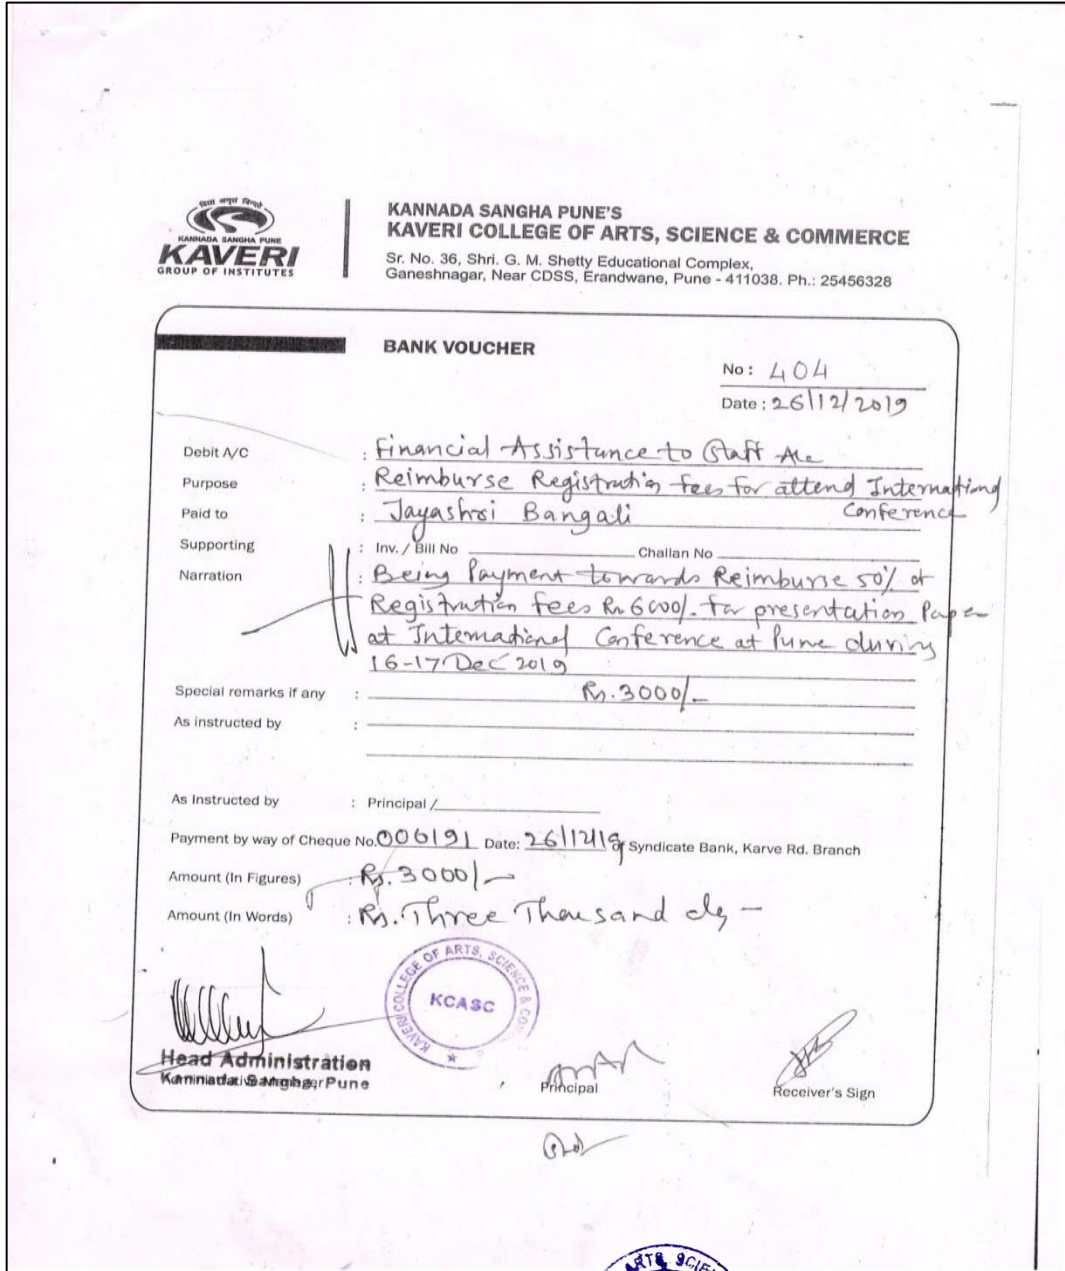 विद्या अमृतं विन्दते
KANNADA SANGHA PUNE
KAVERI
GROUP OF INSTITUTES
KANNADA SANGHA PUNE'S
KAVERI COLLEGE OF ARTS, SCIENCE & COMMERCE
Sr. No. 36, Shri. G. M. Shetty Educational Complex,
Ganeshnagar, Near CDSS, Erandwane, Pune - 411038. Ph.: 25456328
BANK VOUCHER
No : 404
Date : 26/12/2019
Debit A/C : Financial Assistance to Staff A/c
Purpose : Reimburse Registration Fees for attend International
Conference
Paid to : Jayashri Bangali
Supporting : Inv. / Bill No Challan No
Narration : Being Payment towards Reimburse 50% of
Registration Fees Rs 6000/- for presentation Paper
at International Conference at Pune during
16-17 Dec 2019
Special remarks if any : Rs. 3000/-
As instructed by :
As Instructed by : Principal /
Payment by way of Cheque No. 006191 Date: 26/12/19 of Syndicate Bank, Karve Rd. Branch
Amount (In Figures) : Rs. 3000/-
Amount (In Words) : Rs. Three Thousand only -
KAVERI COLLEGE OF ARTS, SCIENCE & CO
KCASC
Head Administration
Kannada Sangha, Pune
Principal
Receiver's Sign
ARTS, SCIE